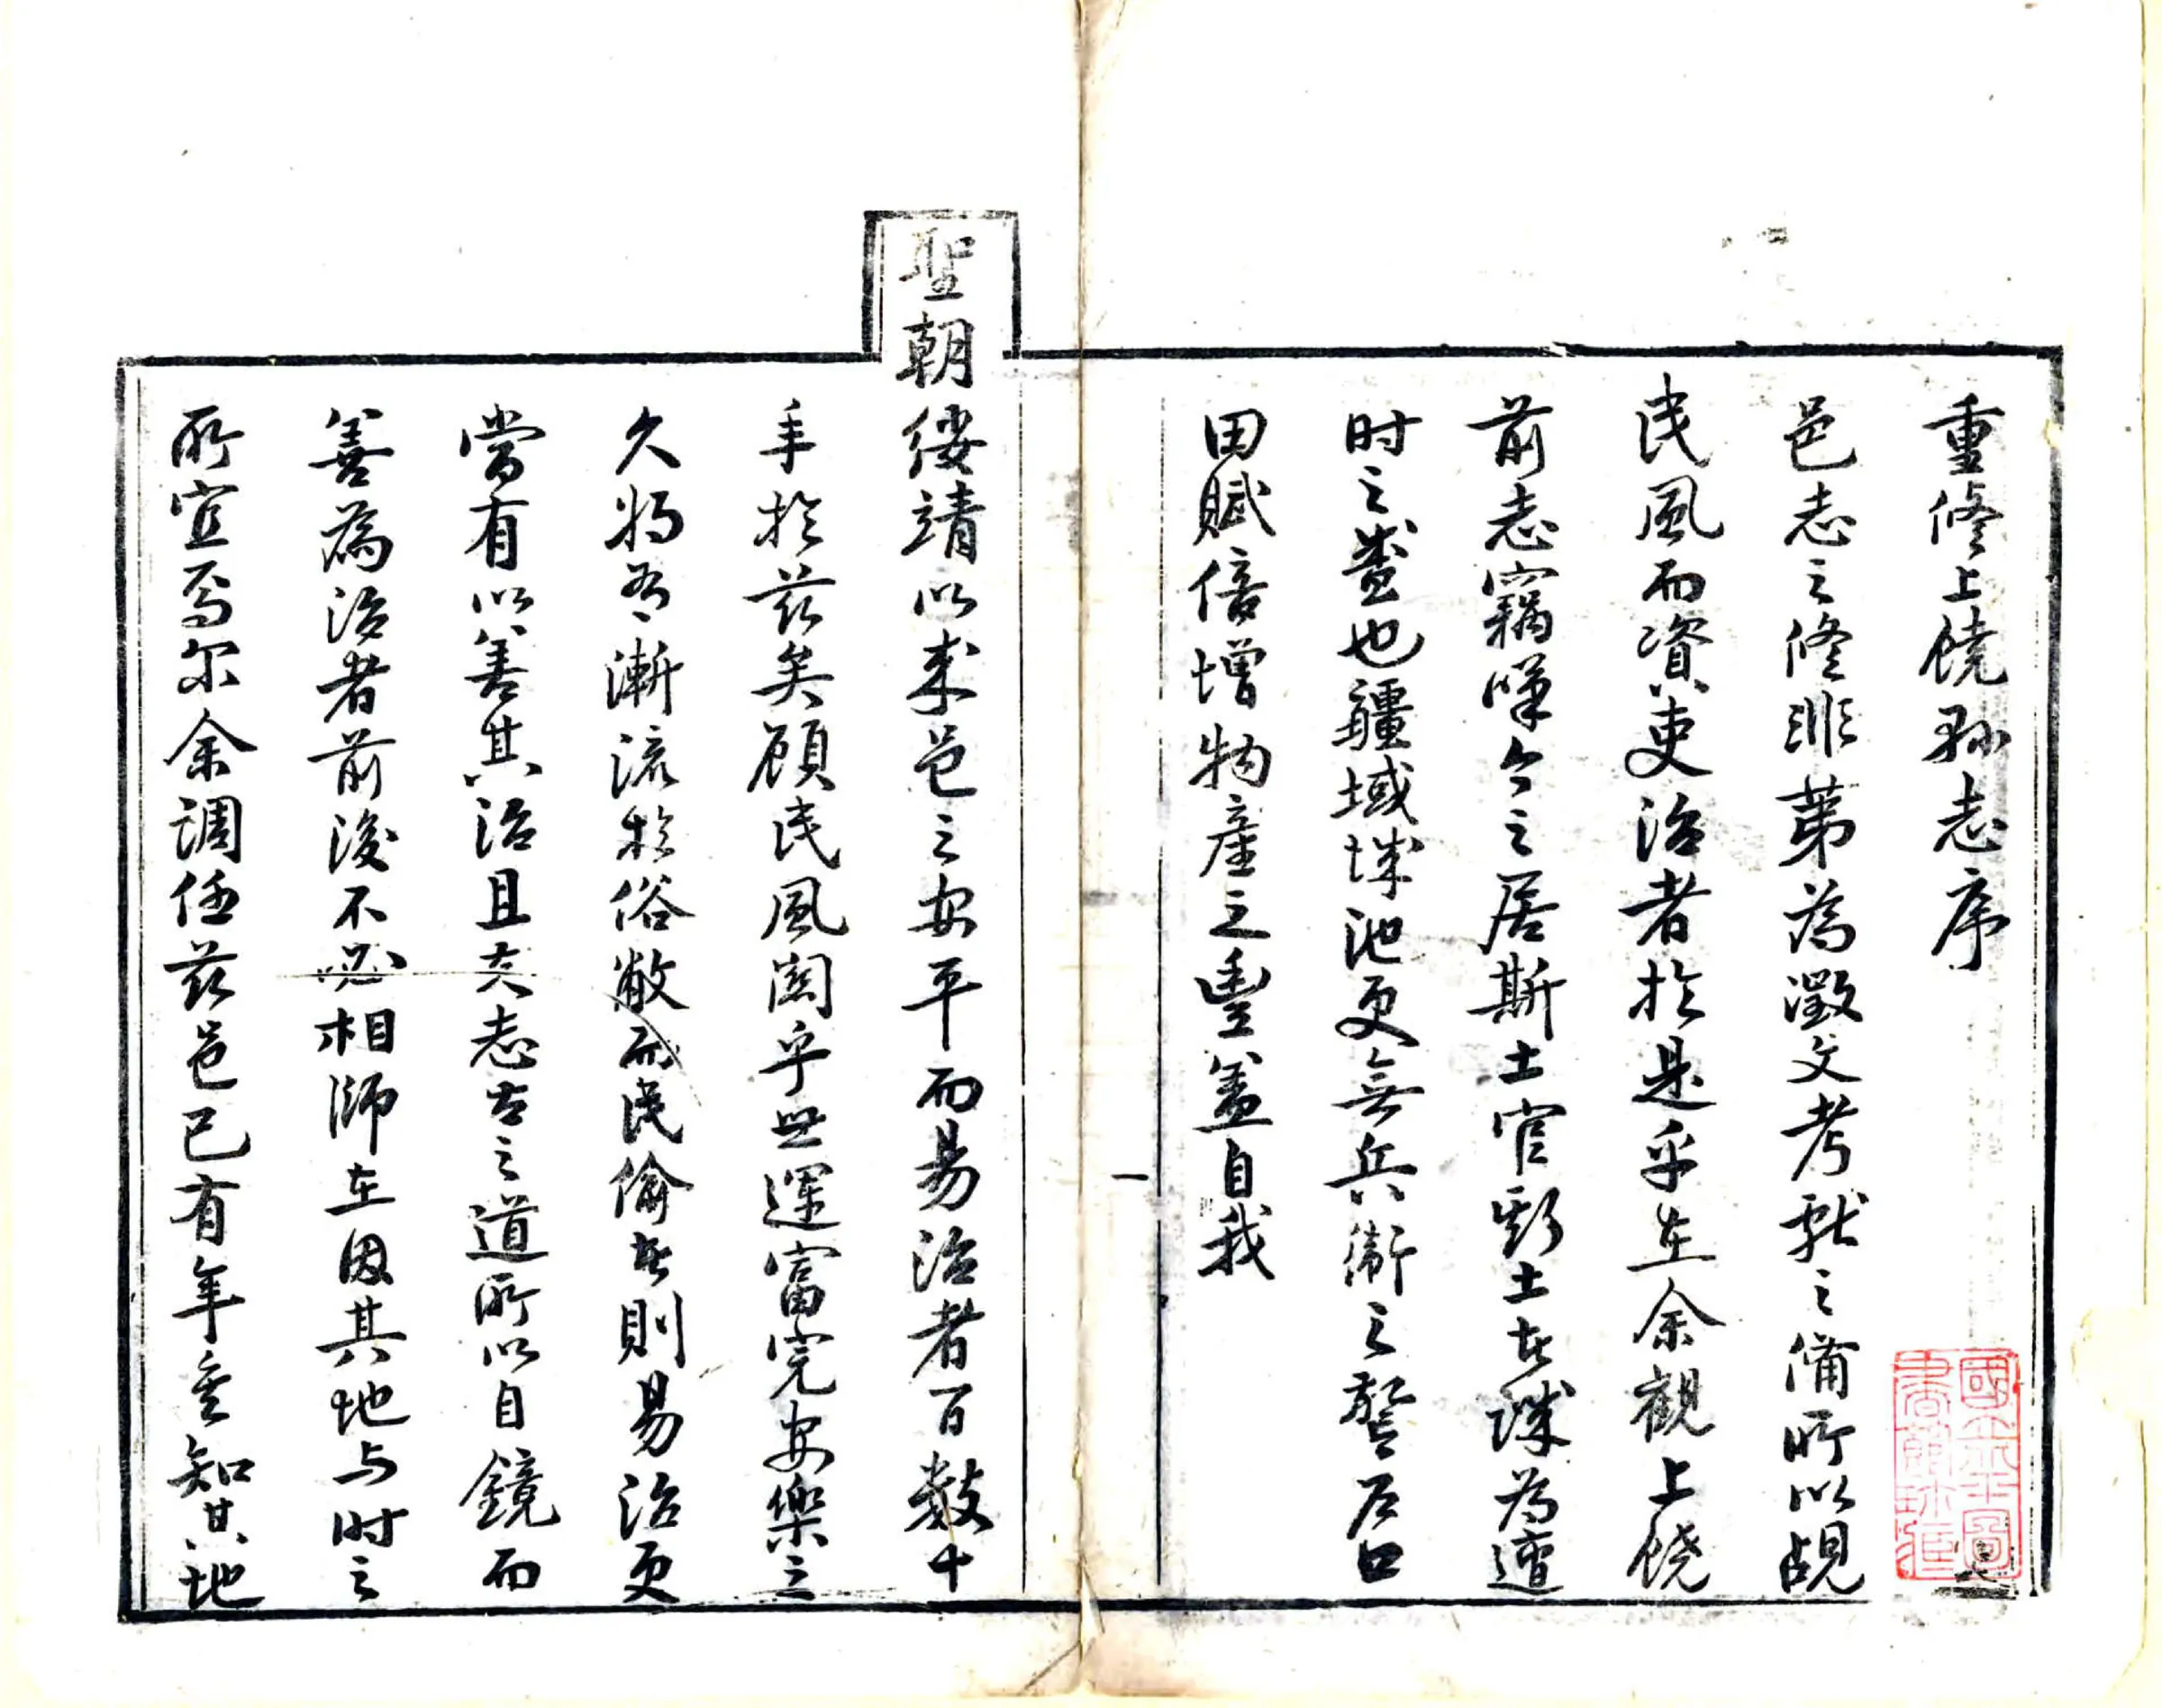 重修上饒縣志序
邑志之修非第為徵文考獻之備所以覘
民風而資吏治者於是乎在余觀上饒
前志竊嘆今之居斯土官斯土者誠為遭
时之盛也疆域城池更無兵衝之警戶口
田賦倍增物產之豐蓋自我
聖朝綏靖以来邑之安平而易治者百數十
年於茲矣顧民風關乎世運富完安樂之
久將有漸流於俗敝而民偷者則易治更
當有以善其治且夫志古之道所以自鏡而
善為治者前後不必相師在因其地与时之
所宜焉尔余調任茲邑已有年矣知其地
一
國立北平圖書館珍藏